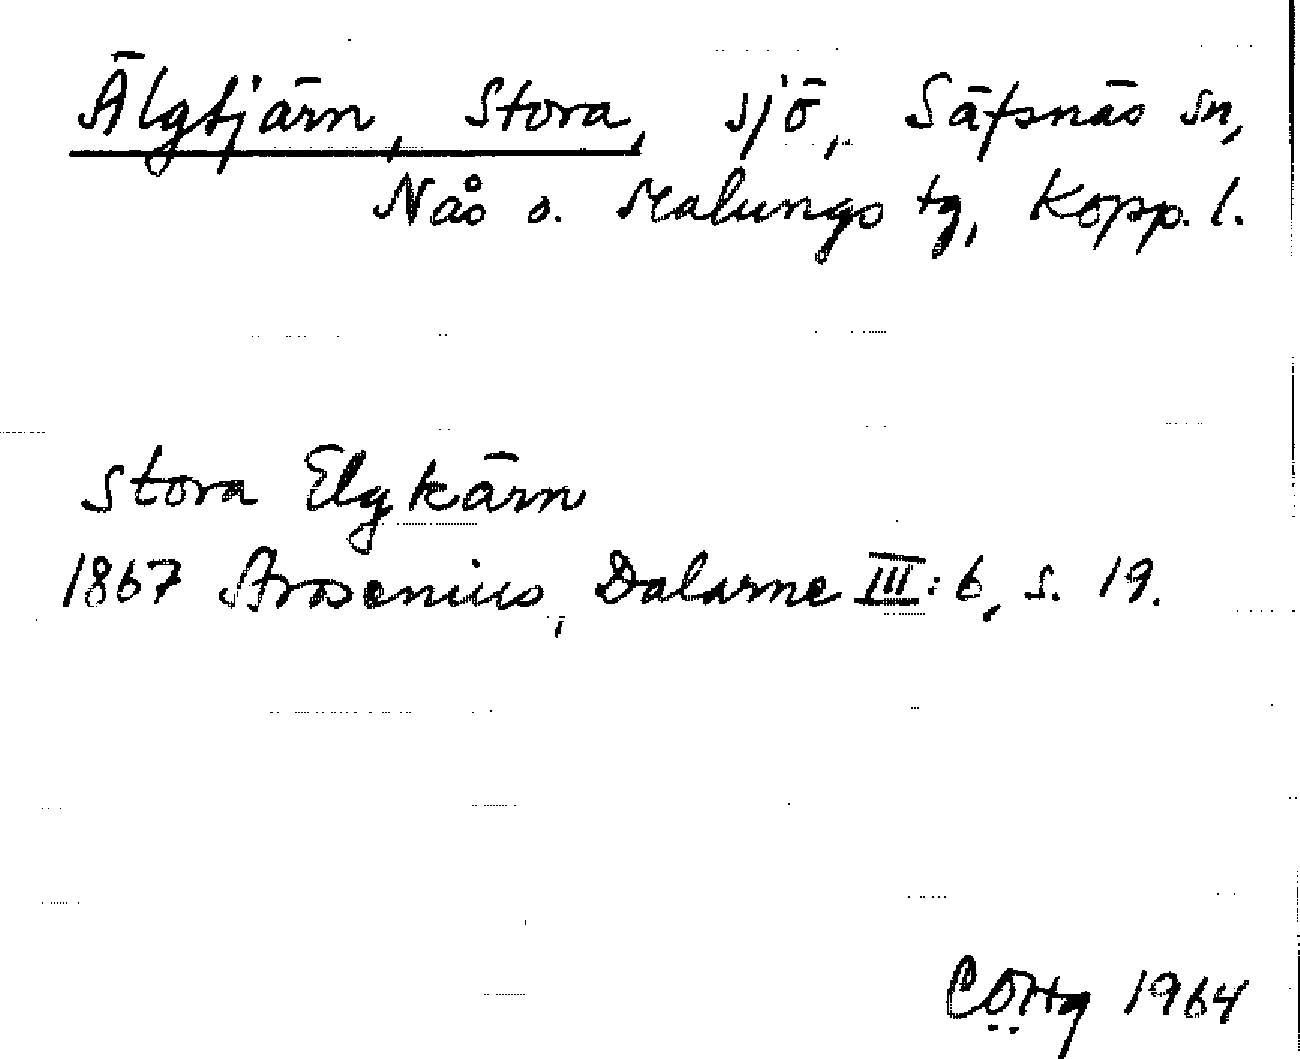 Älgtjärn, Stora, sjö, Säfsnäs sn,
Nås o. Malungs tg, Kopp. l.
Stora Elgkärn
1867 Arosenius, Dalarne III: 6, s. 19.
1964